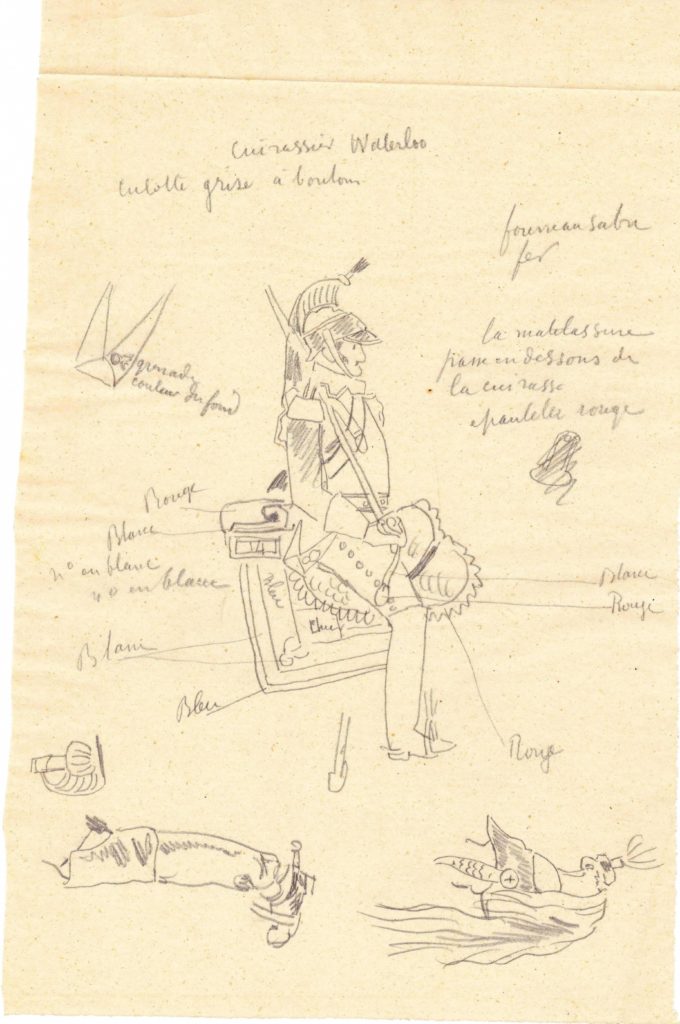 Cuirassier Waterloo
culotte grise à boutons
fourreau sabre
fer
la matelassure
passe en dessous de
la cuirasse
epaulettes rouge
grenade
couleur du fond
Rouge
Blanc
n° en blanc
4 en blanc
4
Bleu
Blanc
Bleu
Blanc
Rouge
Rouge